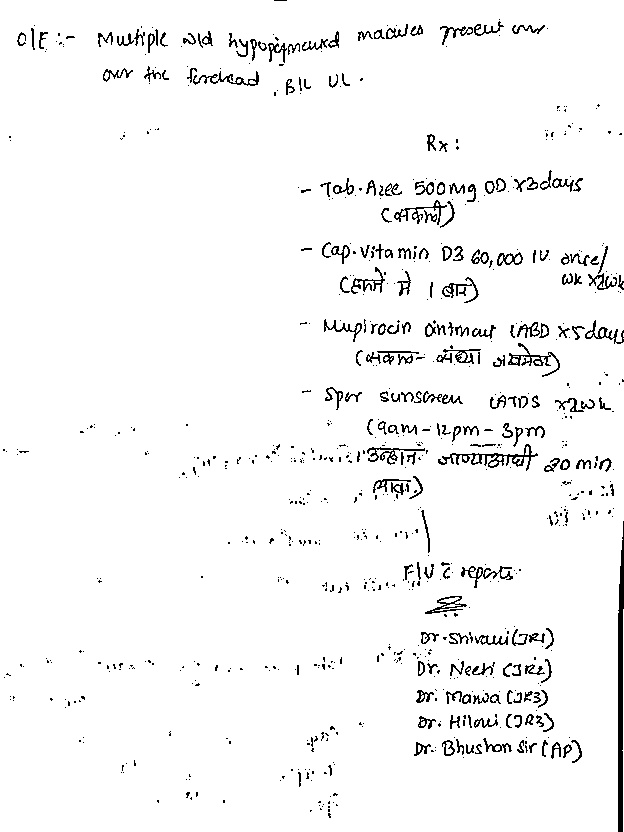 O/E :- Multiple wld hypopigmented macules present over
over the forehead, B/L UL.
Rx :
- Tab. Azee 500mg OD x3days
(सकाळी)
- Cap. Vitamin D3 60,000 IU once/
wk x2wk
(हफ्ते में 1 बार)
- Mupirocin Ointment LABD x5days
(सकाळ - संध्या जखमेवर)
- Spor sunscreen LATDS x2wk
(9am - 12pm - 3pm
उन्हात जाण्याआधी 20 min
लावा.)
F/U c̄ reports
Dr. Shivani (JR1)
Dr. Neeti (JR2)
Dr. Manva (JR3)
Dr. Hiloni (JR3)
Dr. Bhushan Sir (AP)